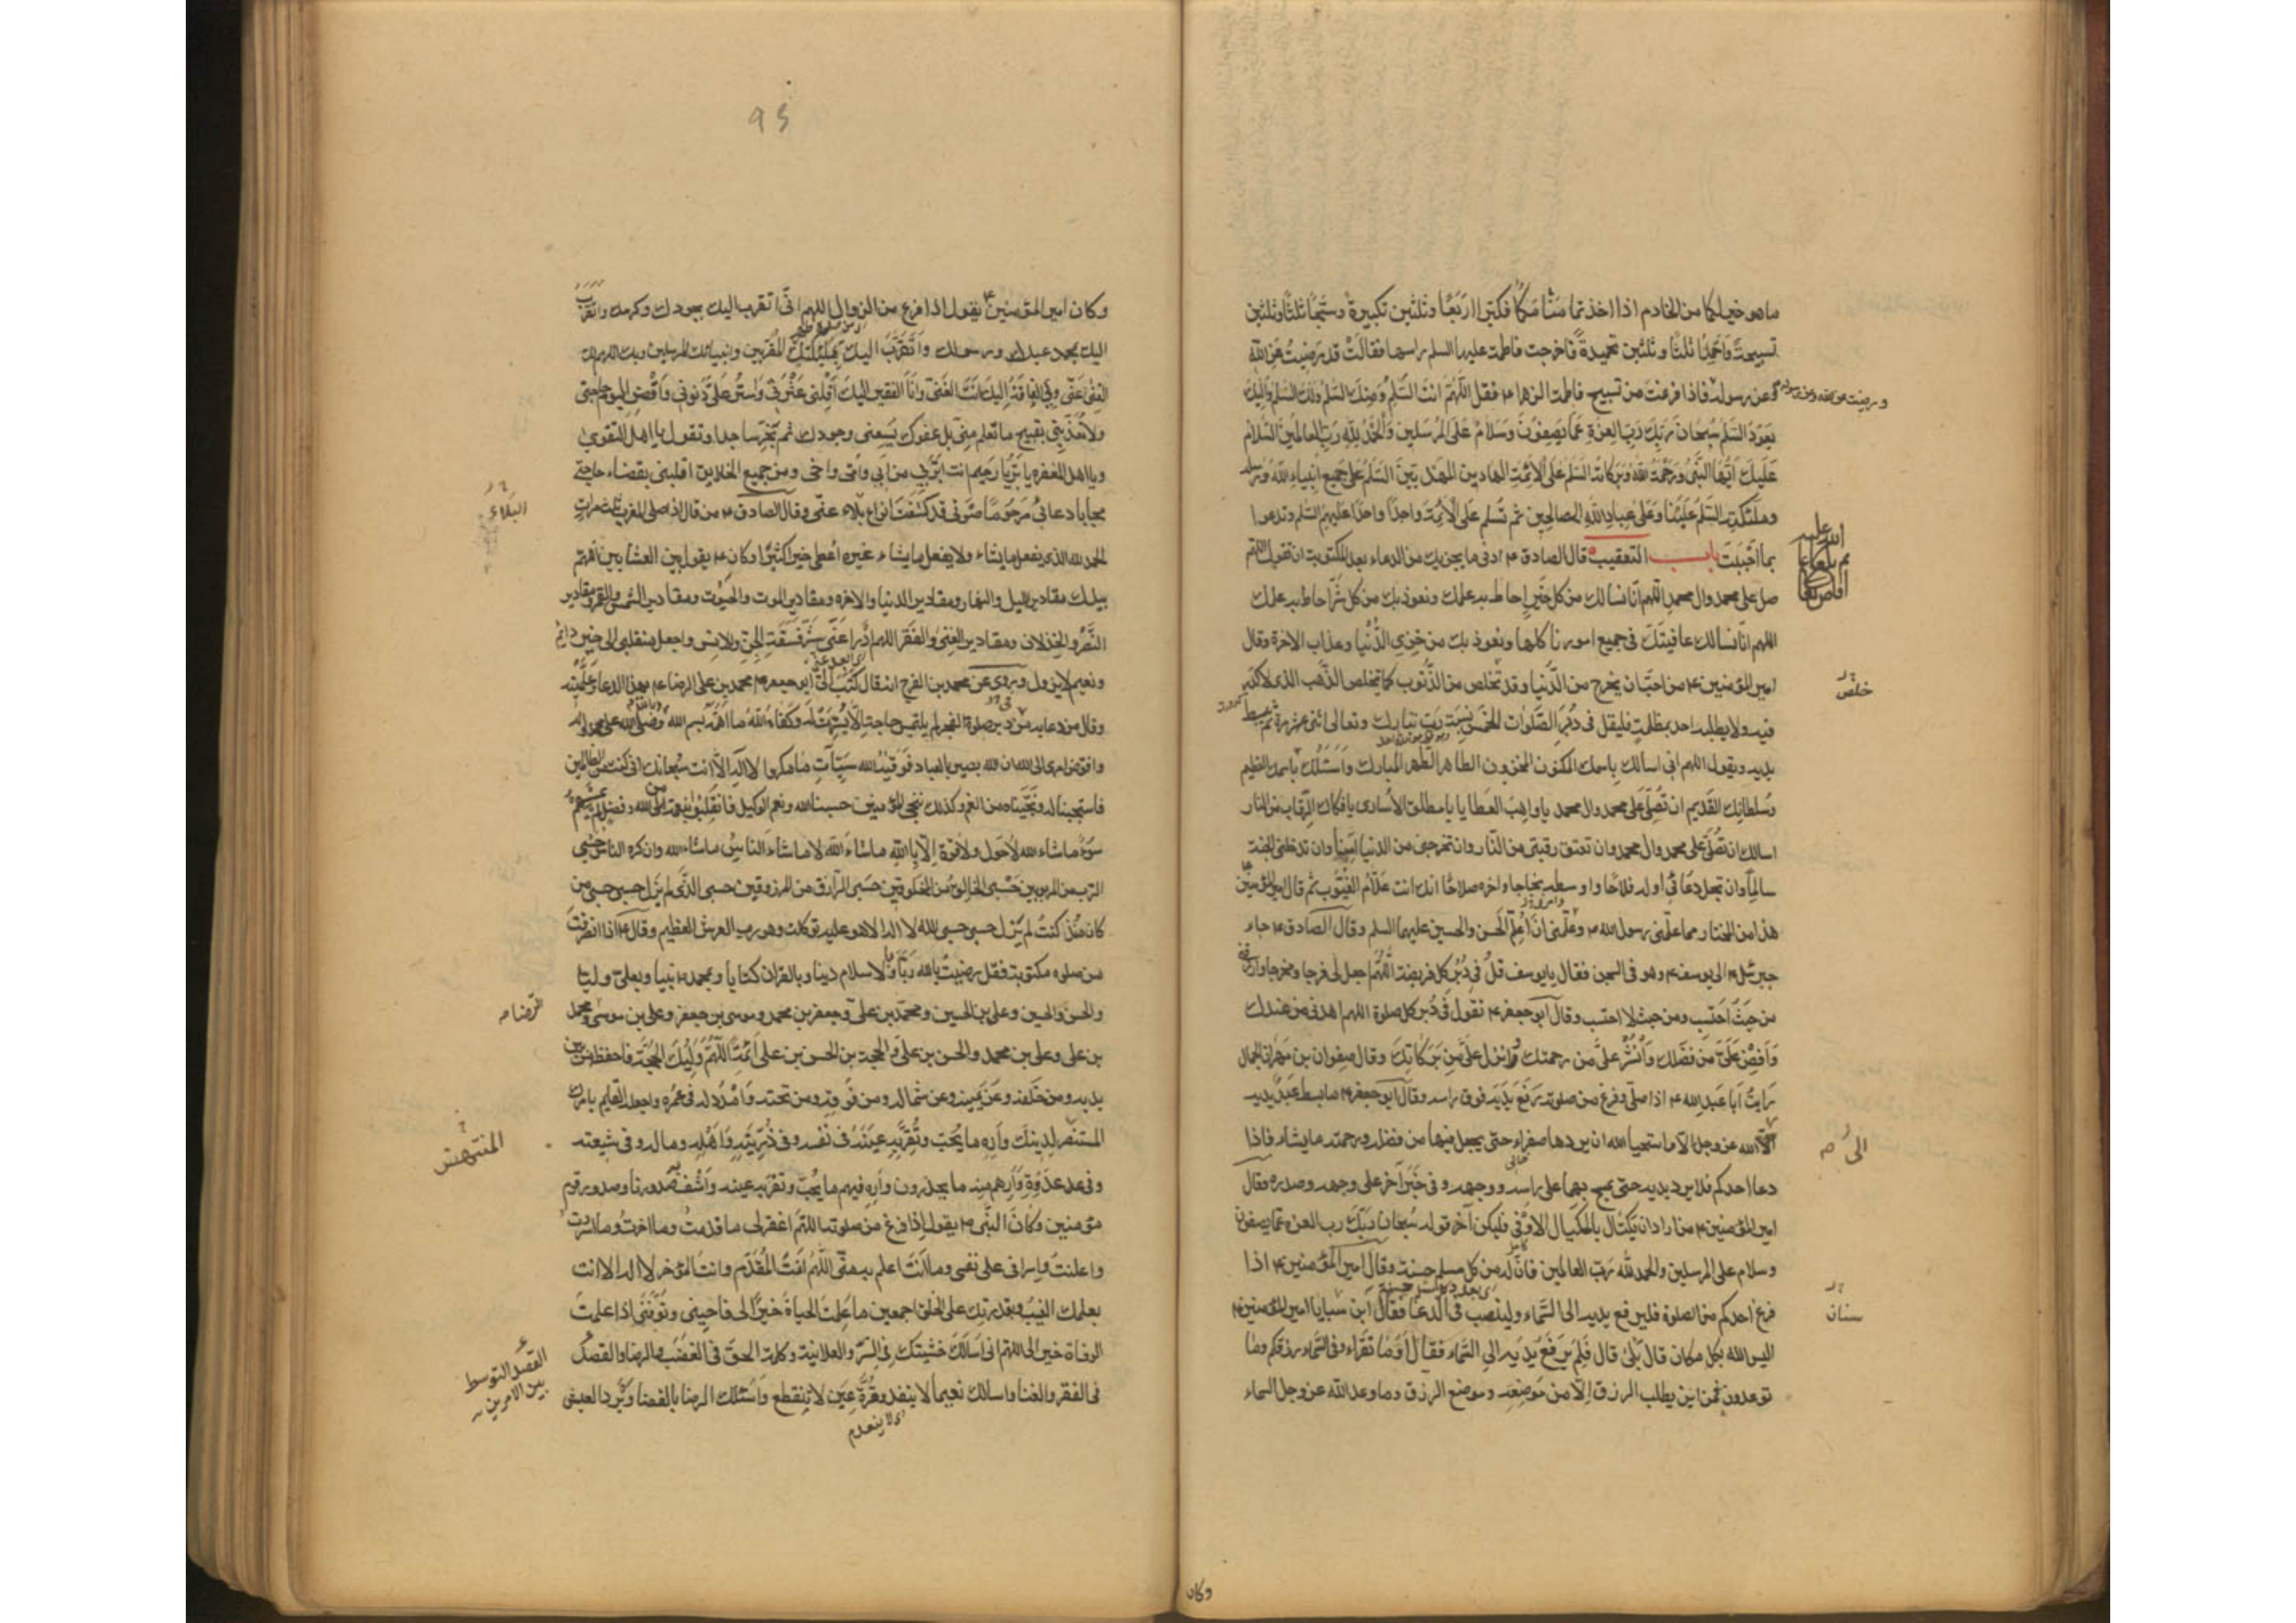 ماهو خير لكما من الخادم اذا اخذتما منامكما فكبرا اربعا وثلثين تكبيرة وسبحا ثلثا وثلثين
تسبيحة واحمدا ثلثا وثلثين تحميدة فاخرجت فاطمة عليها السلم راسها فقالت قد رضيت عن الله
وعن رسوله فاذا فرغت من تسبيح فاطمة الزهرا ع فقل اللهم انت السلم ومنك السلم ولك السلم واليك
يعود السلم سبحان ربك رب العزة عما يصفون وسلام على المرسلين والحمد لله رب العالمين السلام
عليك ايها النبي ورحمة الله وبركاته السلم على الائمة الهادين المهديين السلم على جميع انبياء الله ورسله
وملئكته السلم علينا وعلى عباد الله الصالحين ثم تسلم على الائمة واحدا واحدا عليهم السلم وتدعوا
بما احببت باب التعقيب قال الصادق ع ادنى ما يجزيك من الدعاء بعد المكتوبة ان تقول اللهم
صل على محمد وال محمد اللهم انا نسالك من كل خير احاط به علمك ونعوذ بك من كل شر احاط به علمك
اللهم انا نسالك عافيتك فى جميع امورنا كلها ونعوذ بك من خزى الدنيا وعذاب الاخرة وقال
امير المؤمنين ع من احب ان يخرج من الدنيا وقد تخلص من الذنوب كما يتخلص الذهب الذى لا كدر
فيه ولا يطلبه احد بمظلمة فليقل فى دبر الصلوات الخمس نسبة رب تبارك وتعالى اثنى عشر مرة ثم يبسط
يديه ويقول اللهم انى اسالك باسمك المكنون المخزون الطاهر الطهر المبارك واسئلك باسمك العظيم
وسلطانك القديم ان تصلى على محمد وال محمد يا واهب العطايا يا مطلق الأسارى يا فكاك الرقاب من النار
اسالك ان تصلى على محمد وال محمد وان تعتق رقبتى من النار وان تخرجنى من الدنيا امنا وان تدخلنى الجنة
سالما وان تجعل دعائى اوله فلاحا واوسطه نجاحا واخره صلاحا انك انت علام الغيوب ثم قال امير المؤمنين
هذا من المختار مما علمنى رسول الله ص وعلمنى ان اعلم الحسن والحسين عليهما السلم وقال الصادق ع جاء
جبرئيل ع الى يوسف ع وهو فى السجن فقال يا يوسف قل فى دبر كل فريضة اللهم اجعل لى فرجا ومخرجا وارزقنى
من حيث احتسب ومن حيث لا احتسب وقال ابو جعفر ع تقول فى دبر كل صلوة اللهم اهدنى من عندك
وافض على من فضلك وانشر على من رحمتك وانزل على من بركاتك وقال صفوان بن مهران الجمال
رايت ابا عبد الله ع اذا صلى وفرغ من صلوته يرفع يديه فوق راسه وقال ابو جعفر ع ما بسط عبد يديه
الى الله عز وجل الا ما استحيا الله ان يردها صفراء حتى يجعل فيها من فضله ورحمته ما يشاء فاذا
دعا احدكم فلا يرد يديه حتى يمسح بهما على راسه ووجهه وفى خبر آخر على وجهه وصدره وقال
امير المؤمنين ع من اراد ان يكتال بالمكيال الاوفى فليكن آخر قوله سبحان ربك رب العزة عما يصفون
وسلام على المرسلين والحمد لله رب العالمين فان له من كل مسلم حسنة وقال امير المؤمنين ع اذا
فرغ احدكم من الصلوة فليرفع يديه الى السماء ولينصب فى الدعا فقال ابن سبا يا امير المؤمنين ع
اليس الله بكل مكان قال بلى قال فلم يرفع يديه الى السماء فقال اوما تقراء وفى السماء رزقكم وما
توعدون فمن اين يطلب الرزق الا من موضعه وموضع الرزق وما وعد الله عز وجل السماء
خلص
الى
سنان
وكان
95
وكان امير المؤمنين ع يقول اذا فرغ من الزوال اللهم انى اتقرب اليك بجودك وكرمك واتقرب
اليك بمحمد عبدك ورسولك واتقرب اليك بملئكتك المقربين وانبيائك المرسلين وبك اللهم لك
الغنى عنى وبى الفاقة اليك انت الغنى وانا الفقير اليك اقلنى عثرتى واستر على ذنوبى واقض اليوم حاجتى
ولا تعذبنى بقبيح ما تعلم منى بل عفوك يسعنى وجودك ثم يخر ساجدا وتقول يا اهل التقوى
ويا اهل المغفرة يا بر يا رحيم انت ابر بى من ابى وامى ومن جميع الخلايق اقلبنى بقضاء حاجتى
مجابا دعائى مرحوما صوتى قد كشفت انواع بلاء عنى وقال الصادق ع من قال اذا صلى المغرب ثلث مرات
الحمد لله الذى يفعل ما يشاء ولا يفعل ما يشاء غيره اعطى خيرا كثيرا وكان ع يقول بين العشايين اللهم
بيدك مقادير الليل والنهار ومقادير الدنيا والاخره ومقادير الموت والحيوت ومقادير الشمس والقمر ومقادير
النصر والخذلان ومقادير الغنى والفقر اللهم ادرا عنى شر فسقة الجن والانس واجعل منقلبى الى خير دائم
ونعيم لا يزول وروى عن محمد بن الفرج انه قال كتب الى ابو جعفر ع محمد بن على الرضا ع بهذا الدعا وعلمنيه
وقال من دعا به فى دبر صلوة الفجر لم يلتمس حاجة الا يسرت له وكفاه الله ما اهمه بسم الله وصلى الله على محمد واله
وافوض امرى الى الله ان الله بصير بالعباد فوقيه الله سيئات ما مكروا لا اله الا انت سبحانك انى كنت من الظالمين
فاستجبنا له ونجيناه من الغم وكذلك ننجى المؤمنين حسبنا الله ونعم الوكيل فانقلبوا بنعمة من الله وفضل لم يمسسهم
سوء ما شاء الله لا حول ولا قوة الا بالله ما شاء الله لا ما شاء الناس ما شاء الله وان كره الناس حسبى
الرب من المربوبين حسبى الخالق من المخلوقين حسبى الرازق من المرزوقين حسبى الذى لم يزل حسبى حسبى من
كان منذ كنت لم يزل حسبى حسبى الله لا اله الا هو عليه توكلت وهو رب العرش العظيم وقال ع اذا انصرفت
من صلوه مكتوبة فقل رضيت بالله ربا وبالاسلام دينا وبالقران كتابا وبمحمد ص نبيا وبعلى وليا
والحسن والحسين وعلى بن الحسين ومحمد بن على وجعفر بن محمد وموسى بن جعفر وعلى بن موسى ومحمد
بن على وعلى بن محمد والحسن بن على والحجة بن الحسن بن على ائمة اللهم وليك الحجة فاحفظه من بين
يديه ومن خلفه وعن يمينه وعن شماله ومن فوقه ومن تحته وامدد له فى عمره واجعله القايم بامرك
المنتصر لدينك واره ما يحب وتقر به عينه فى نفسه وفى ذريته واهله وماله وفى شيعته
وفى عدوه وارهم منه ما يحذرون واره فيهم ما يحب وتقر به عينه واشف به صدورنا وصدور قوم
مؤمنين وكان النبى ص يقول اذا فرغ من صلوته اللهم اغفر لى ما قدمت وما اخرت وما اسررت
وما اعلنت واسرافى على نفسى وما انت اعلم به منى اللهم انت المقدم وانت المؤخر لا اله الا انت
بعلمك الغيب وبقدرتك على الخلق اجمعين ما علمت الحياة خيرا لى فاحينى وتوفنى اذا علمت
الوفاة خيرا لى اللهم انى اسالك خشيتك فى السر والعلانية وكلمة الحق فى الغضب والرضا والقصد
فى الفقر والغنا واسالك نعيما لا ينفد وقرة عين لا ينقطع واسئلك الرضا بالقضا وبرد العيش
البلاء
الرضا
القصد التوسط
بين الامرين
اى لا ينعدم